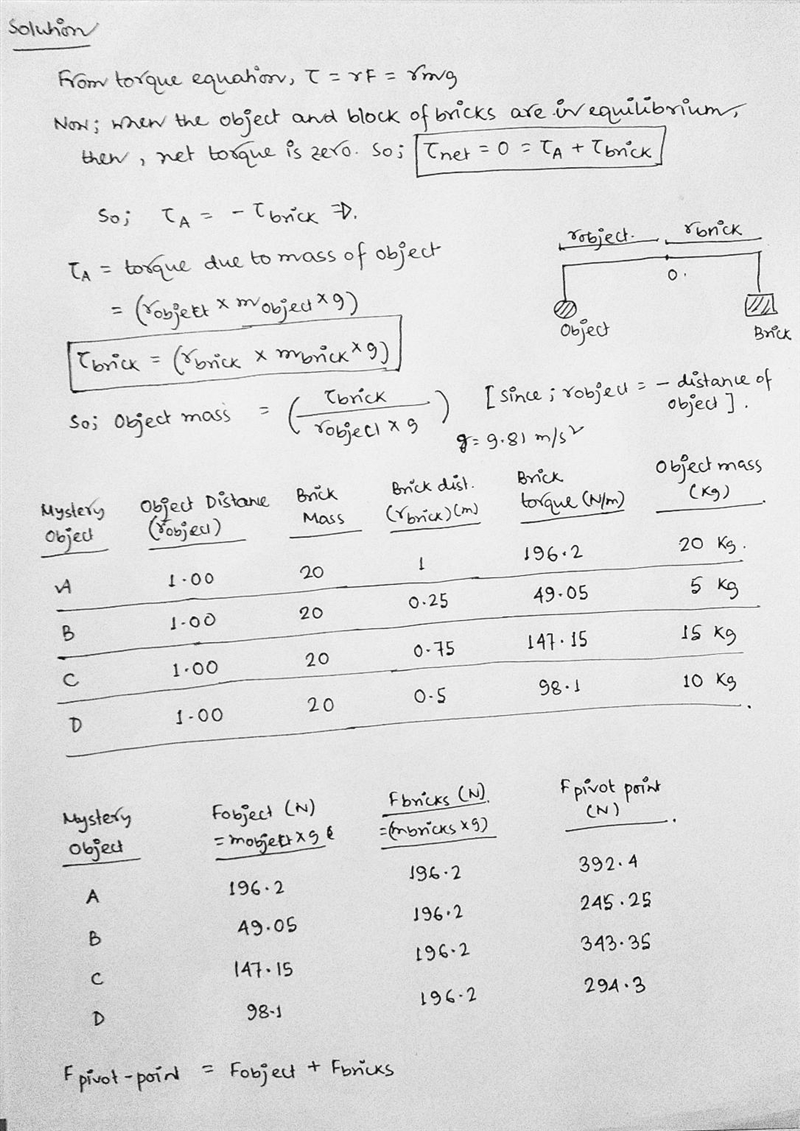 Solution
From torque equation, τ = rF = rmg
Now; when the object and block of bricks are in equilibrium,
then, net torque is zero. So; τnet = 0 = τA + τbrick
So; τA = - τbrick ⇒.
τA = torque due to mass of object
= (robject × mobject × g)
τbrick = (rbrick × mbrick × g)
robject. rbrick
O.
Object Brick
So; Object mass = (τbrick / robject × g) [since; robject = - distance of
object].
g = 9.81 m/s²
Mystery Object Object Distance (robject) Brick Mass Brick dist. (rbrick)(m) Brick torque (N/m) Object mass (kg)
A 1.00 20 1 196.2 20 Kg.
B 1.00 20 0.25 49.05 5 Kg
C 1.00 20 0.75 147.15 15 Kg
D 1.00 20 0.5 98.1 10 Kg
Mystery Object Fobject (N) = mobject × g Fbricks (N) =(mbricks × g) Fpivot point (N)
A 196.2 196.2 392.4
B 49.05 196.2 245.25
C 147.15 196.2 343.35
D 98.1 196.2 294.3
Fpivot-point = Fobject + Fbricks